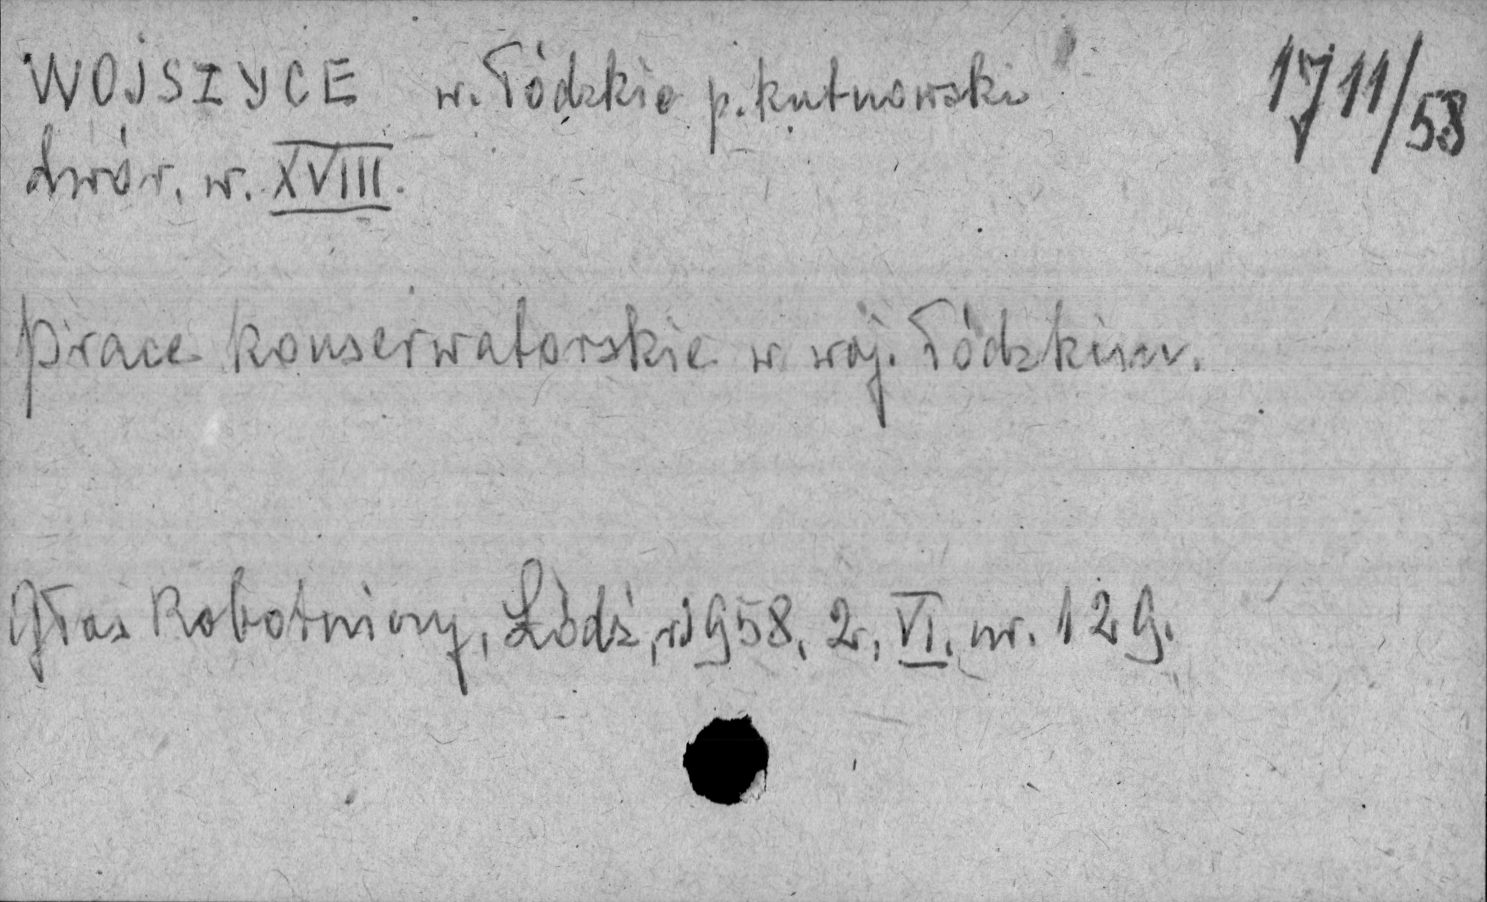 WOJSZYCE w. łódzkie p. kutnowski 1711/58
dwór. w. XVIII.
prace konserwatorskie w woj. łódzkim.
Głos Robotniczy, Łódź, 1958, 2, VI, nr. 129.